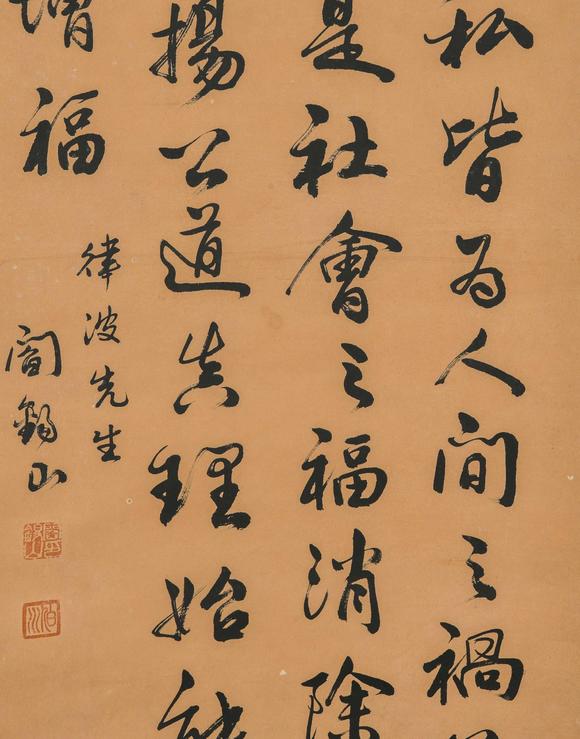 私皆為人間之禍
是社會之福消除
揚公道真理始能
增福
律波先生
閻錫山
閻錫山
伯川